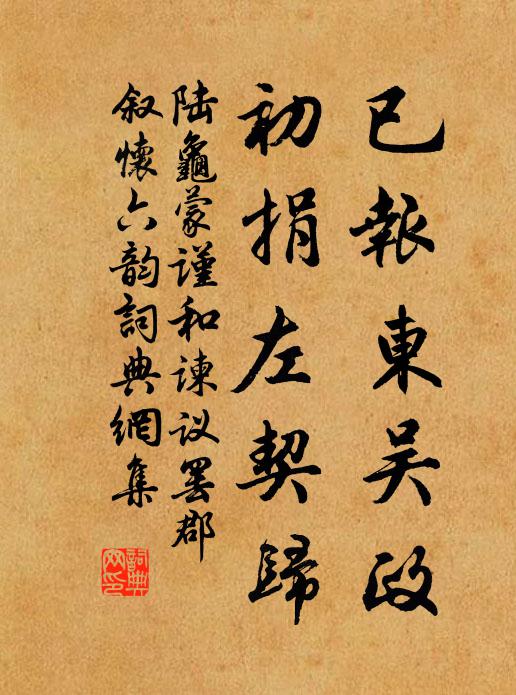 已報東吴政
初捐左契歸
陆龜蒙谨和谏议罢郡
叙懷六韵詞典網集
詞典网印